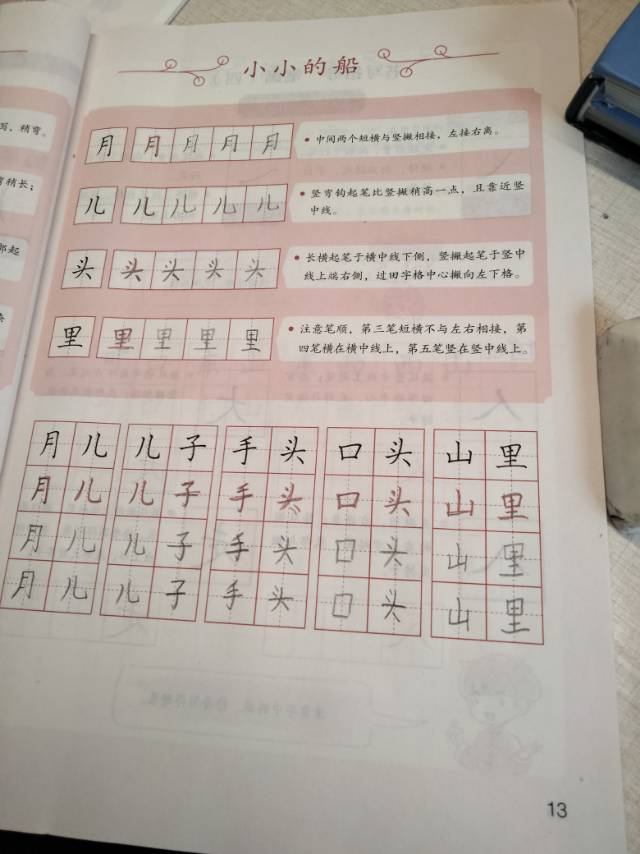 小小的船
月 月 月 月 月
• 中间两个短横与竖撇相接，左接右离。
儿 儿 儿 儿 儿
• 竖弯钩起笔比竖撇稍高一点，且靠近竖
中线。
头 头 头 头 头
• 长横起笔于横中线下侧，竖撇起笔于竖中
线上端右侧，过田字格中心撇向左下格。
里 里 里 里 里
• 注意笔顺，第三笔短横不与左右相接，第
四笔横在横中线上，第五笔竖在竖中线上。
月儿 儿子 手头 口头 山里
月儿 儿子 手头 口头 山里
月儿 儿子 手头 口头 山里
月儿 儿子 手头 口头 山里
13